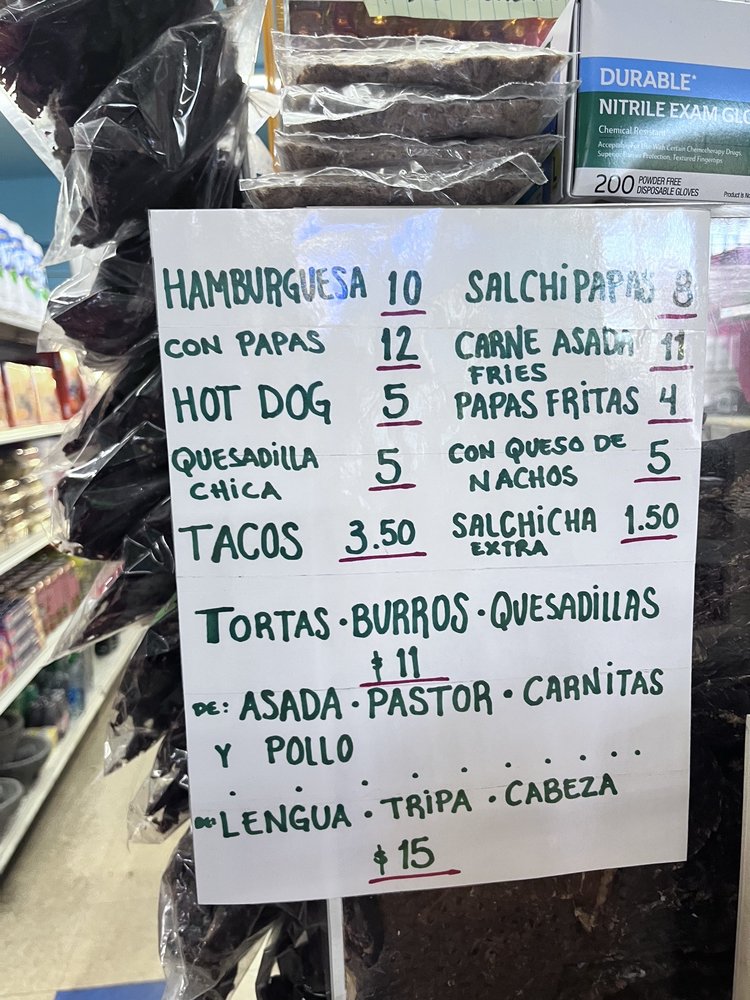 DURABLE*
NITRILE EXAM GLO
Chemical Resistant
Acceptable For Use With Certain Chemotherapy Drugs,
Superior Barrier Protection, Textured Fingertips
200 POWDER FREE
DISPOSABLE GLOVES
HAMBURGUESA 10
CON PAPAS 12
HOT DOG 5
QUESADILLA 5
CHICA
TACOS 3.50
SALCHIPAPAS 8
CARNE ASADA 11
FRIES
PAPAS FRITAS 4
CON QUESO DE 5
NACHOS
SALCHICHA 1.50
EXTRA
TORTAS · BURROS · QUESADILLAS
$11
DE: ASADA · PASTOR · CARNITAS
Y POLLO
DE: LENGUA · TRIPA · CABEZA
$15